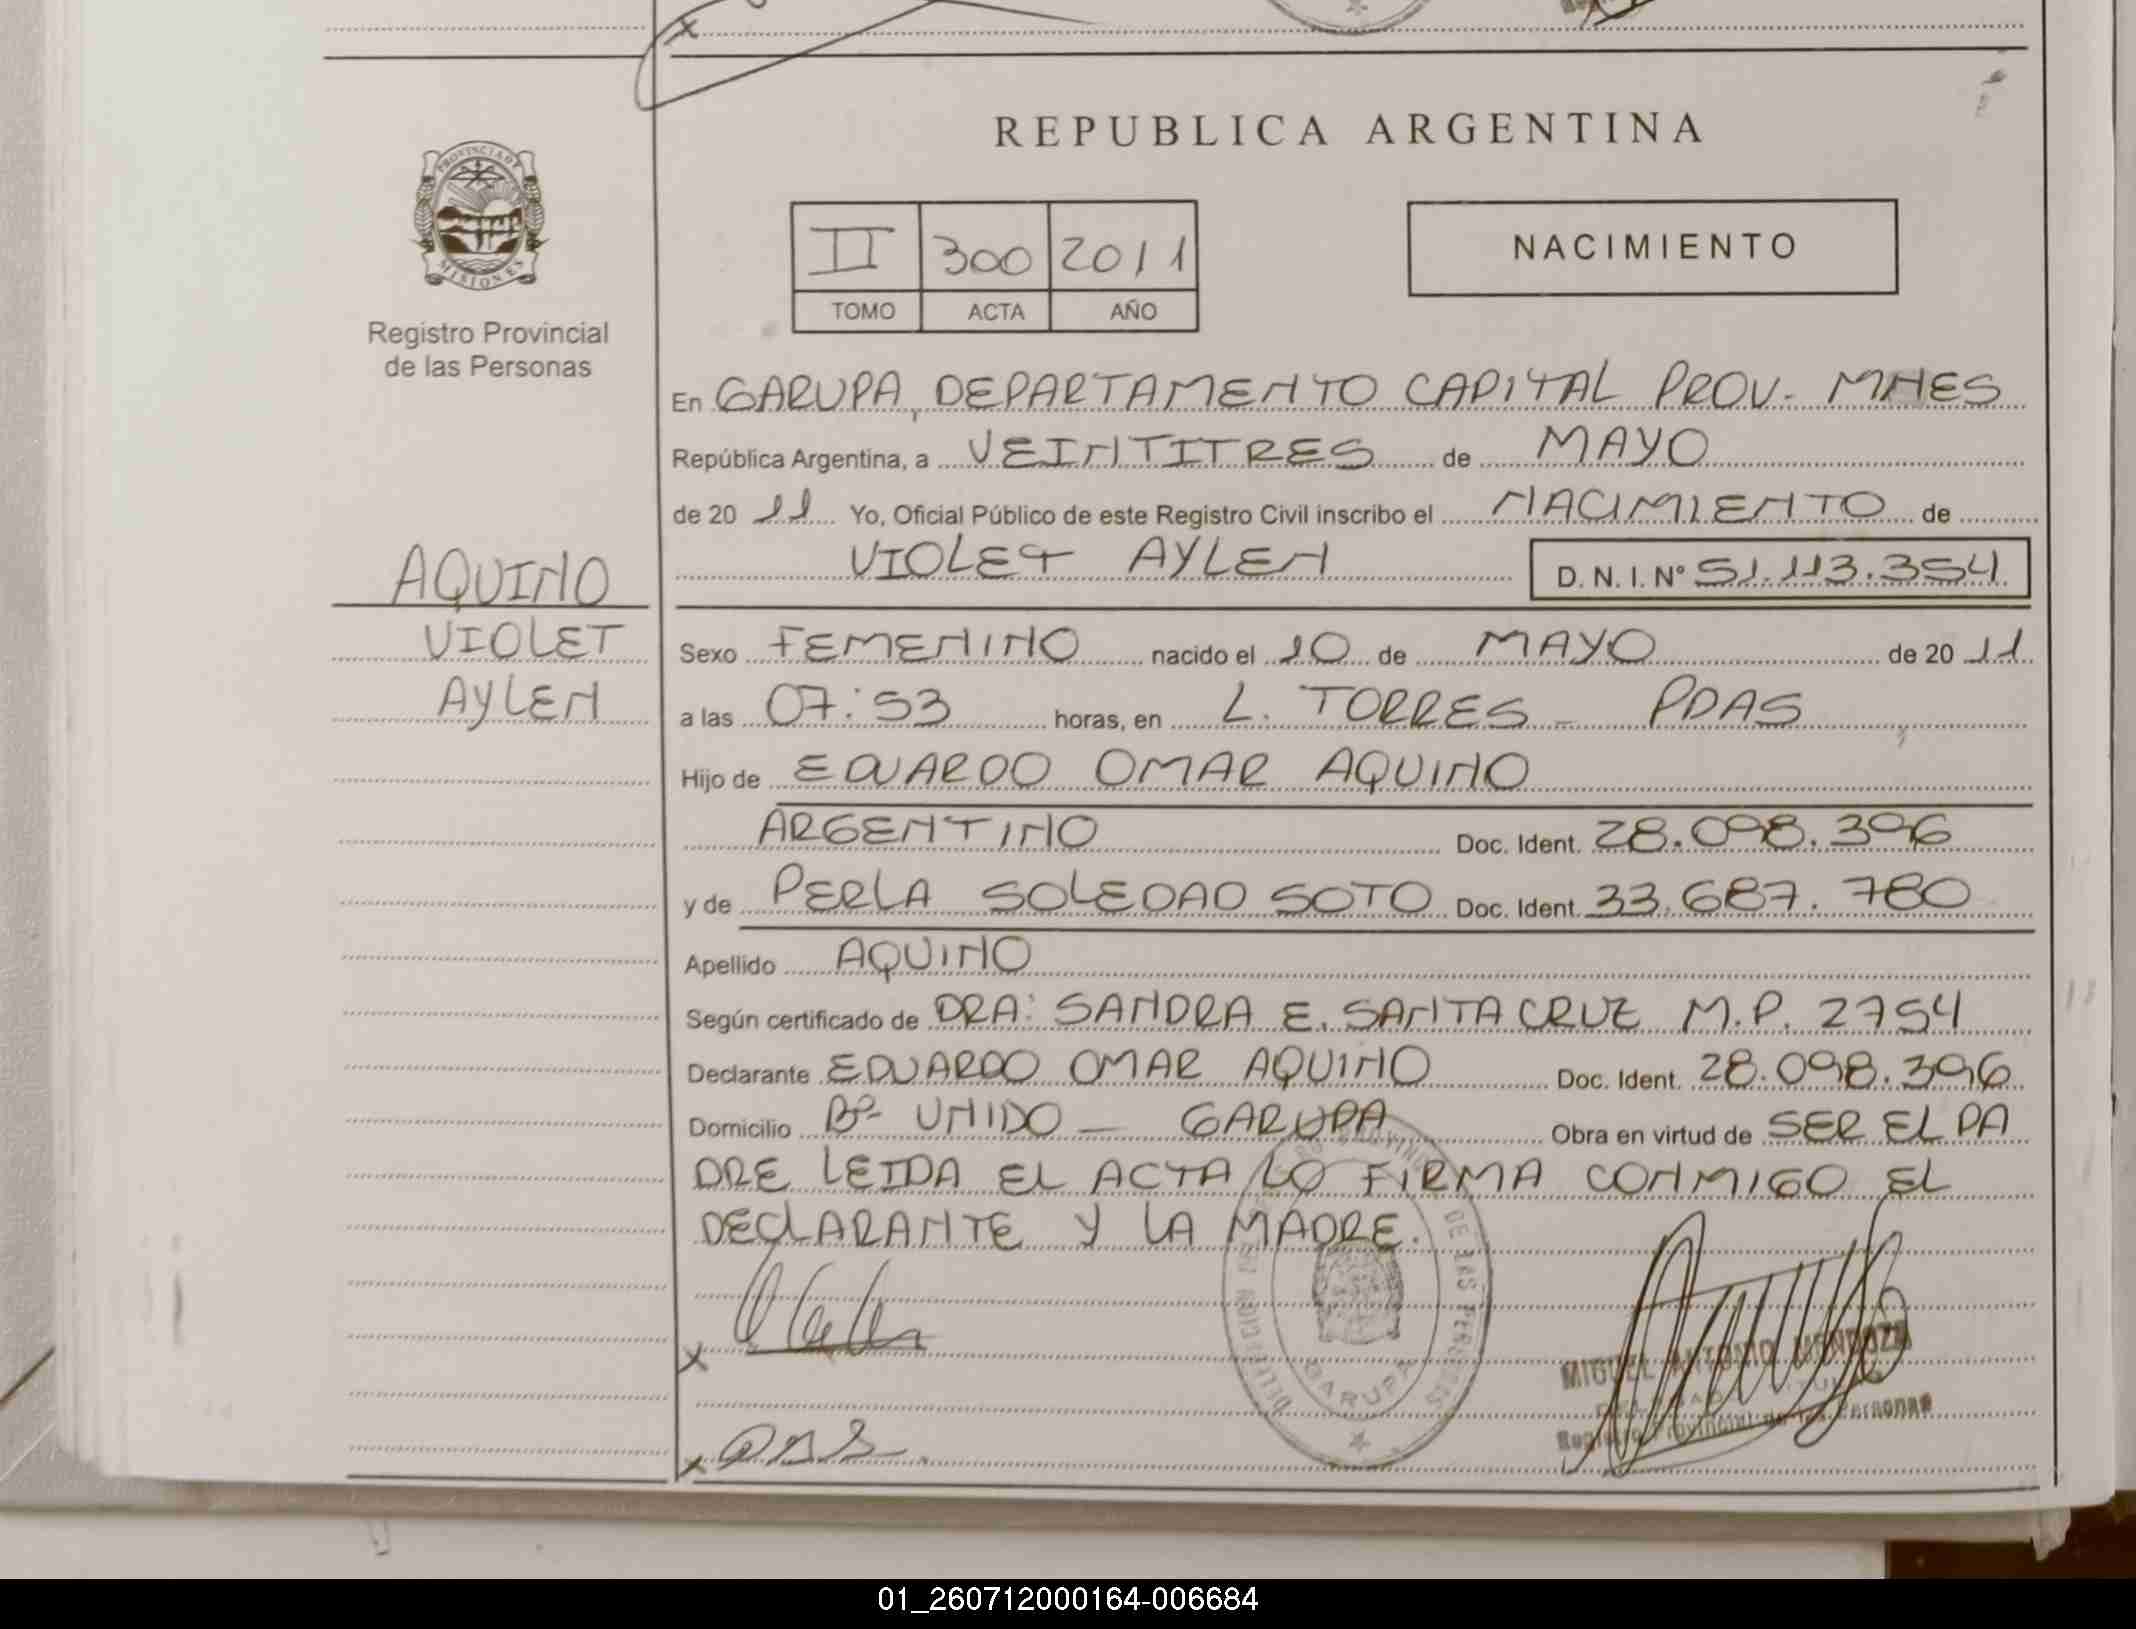 REPUBLICA ARGENTINA
PROVINCIA DE MISIONES
Registro Provincial
de las Personas
II 300 2011
TOMO ACTA AÑO
NACIMIENTO
En GARUPA, DEPARTAMENTO CAPITAL PROV. MNES
República Argentina, a VEINTITRES de MAYO
de 20 11 Yo, Oficial Público de este Registro Civil inscribo el NACIMIENTO de
VIOLET AYLEN D. N. I. Nº 51.113.354
AQUINO
VIOLET
AYLEN
Sexo FEMENINO nacido el 10 de MAYO de 20 11
a las 07:53 horas, en L. TORRES - PDAS
Hijo de EDUARDO OMAR AQUINO
ARGENTINO Doc. Ident. 28.098.396
y de PERLA SOLEDAD SOTO Doc. Ident. 33.687.780
Apellido AQUINO
Según certificado de DRA: SANDRA E. SANTA CRUZ M.P. 2754
Declarante EDUARDO OMAR AQUINO Doc. Ident. 28.098.396
Domicilio Bº UNIDO - GARUPA Obra en virtud de SER EL PA
DRE LEIDA EL ACTA LO FIRMA CONMIGO EL
DECLARANTE Y LA MADRE.
X
X
DE LAS PERSONAS
GARUPA
MIGUEL ANTONIO MENDOZA
Registro Provincial de las Personas
01_260712000164-006684